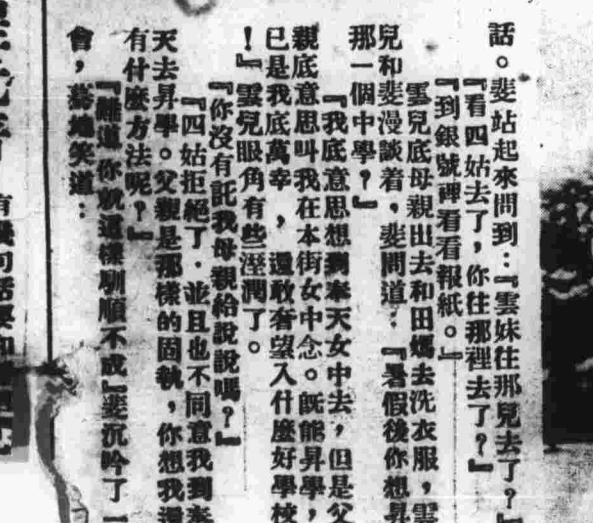 話。斐站起來問到：『雲妹往那兒去了？』
『看四姑去了，你往那裡去了？』
『到銀號裡看看報紙。』
雲兒底母親出去和田媽去洗衣服，雲
兒和斐漫談着，斐問道：『暑假後你想昇
那一個中學？』
『我底意思想到奉天女中去，但是父
親底意思叫我在本街女中念。既能昇學，
已是我底萬幸，還敢奢望入什麼好學校
！』雲兒眼角有些溼潤了。
『你沒有託我母親給說說嗎？』
『四姑拒絕了．並且也不同意我到奉
天去昇學。父親是那樣的固執，你想我還
有什麼方法呢？』
『難道你就這樣馴順不成』斐沉吟了一
會，驀地笑道：
有幾句話要和